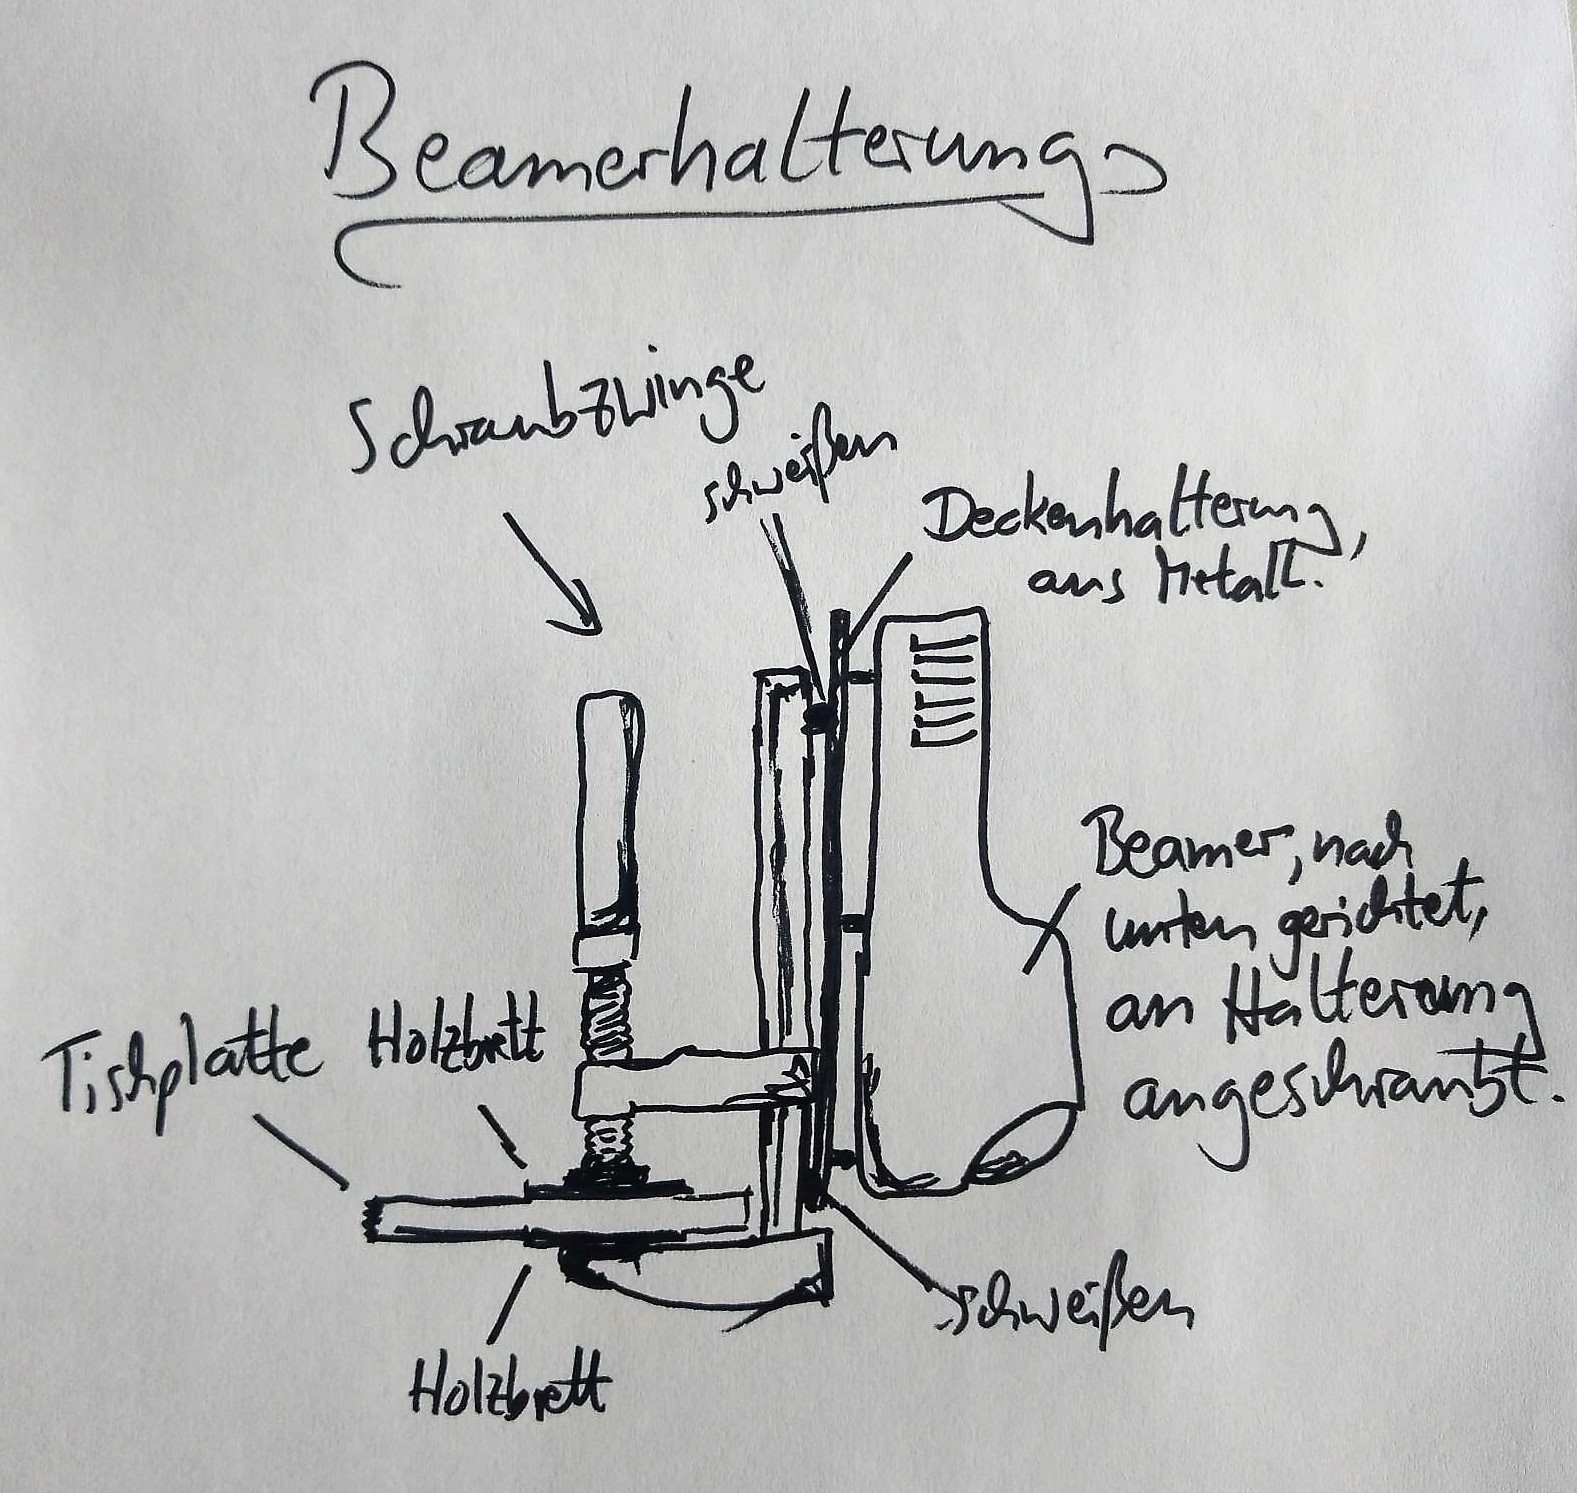 Beamerhalterung
Schraubzwinge
schweißen
Deckenhalterung,
aus Metall.
Beamer, nach
unten gerichtet,
an Halterung
angeschraubt.
Tischplatte
Holzbrett
schweißen
Holzbrett